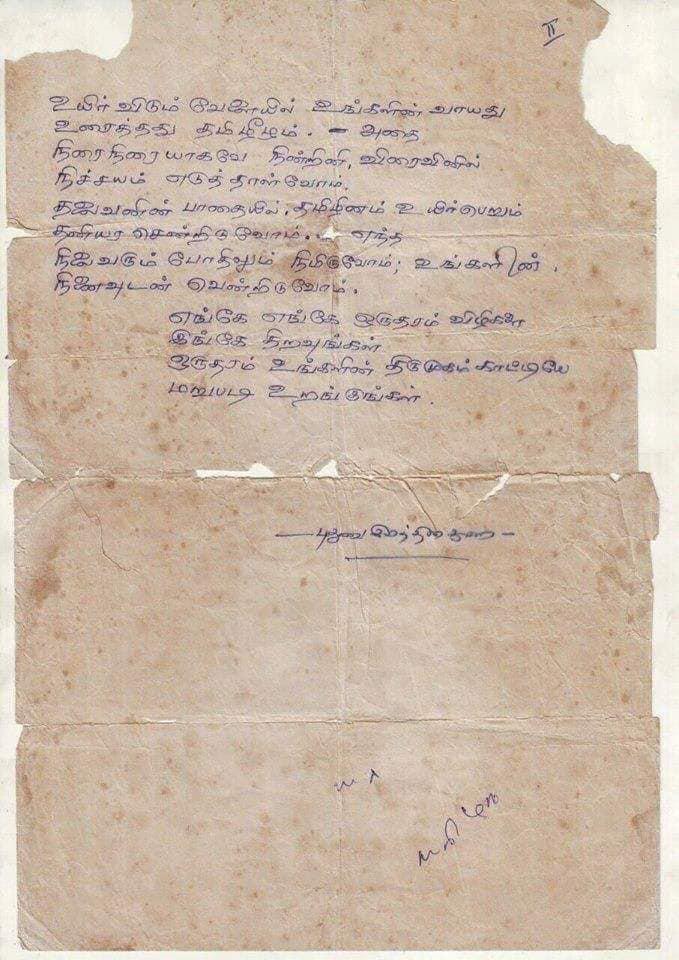 II
உயிர் விடும் வேளையில் உங்களின் வாயது
உரைத்தது தமிழீழம். - அதை
நிரைநிரையாகவே நின்றினி, விரைவினில்
நிச்சயம் எடுத்தாள்வோம்.
தலைவனின் பாதையில், தமிழினம் உயிர்பெறும்
தனியரசென்றிடுவோம். - எந்த
நிலைவரும் போதிலும் நிமிருவோம்; உங்களின்.
நினைவுடன் வென்றிடுவோம்.
எங்கே எங்கே ஒருதரம் விழிகளை
இங்கே திறவுங்கள்
ஒருதரம் உங்களின் திருமுகம் காட்டியே
மறுபடி உறங்குங்கள்.
- புதுவை இரத்தினதுரை -